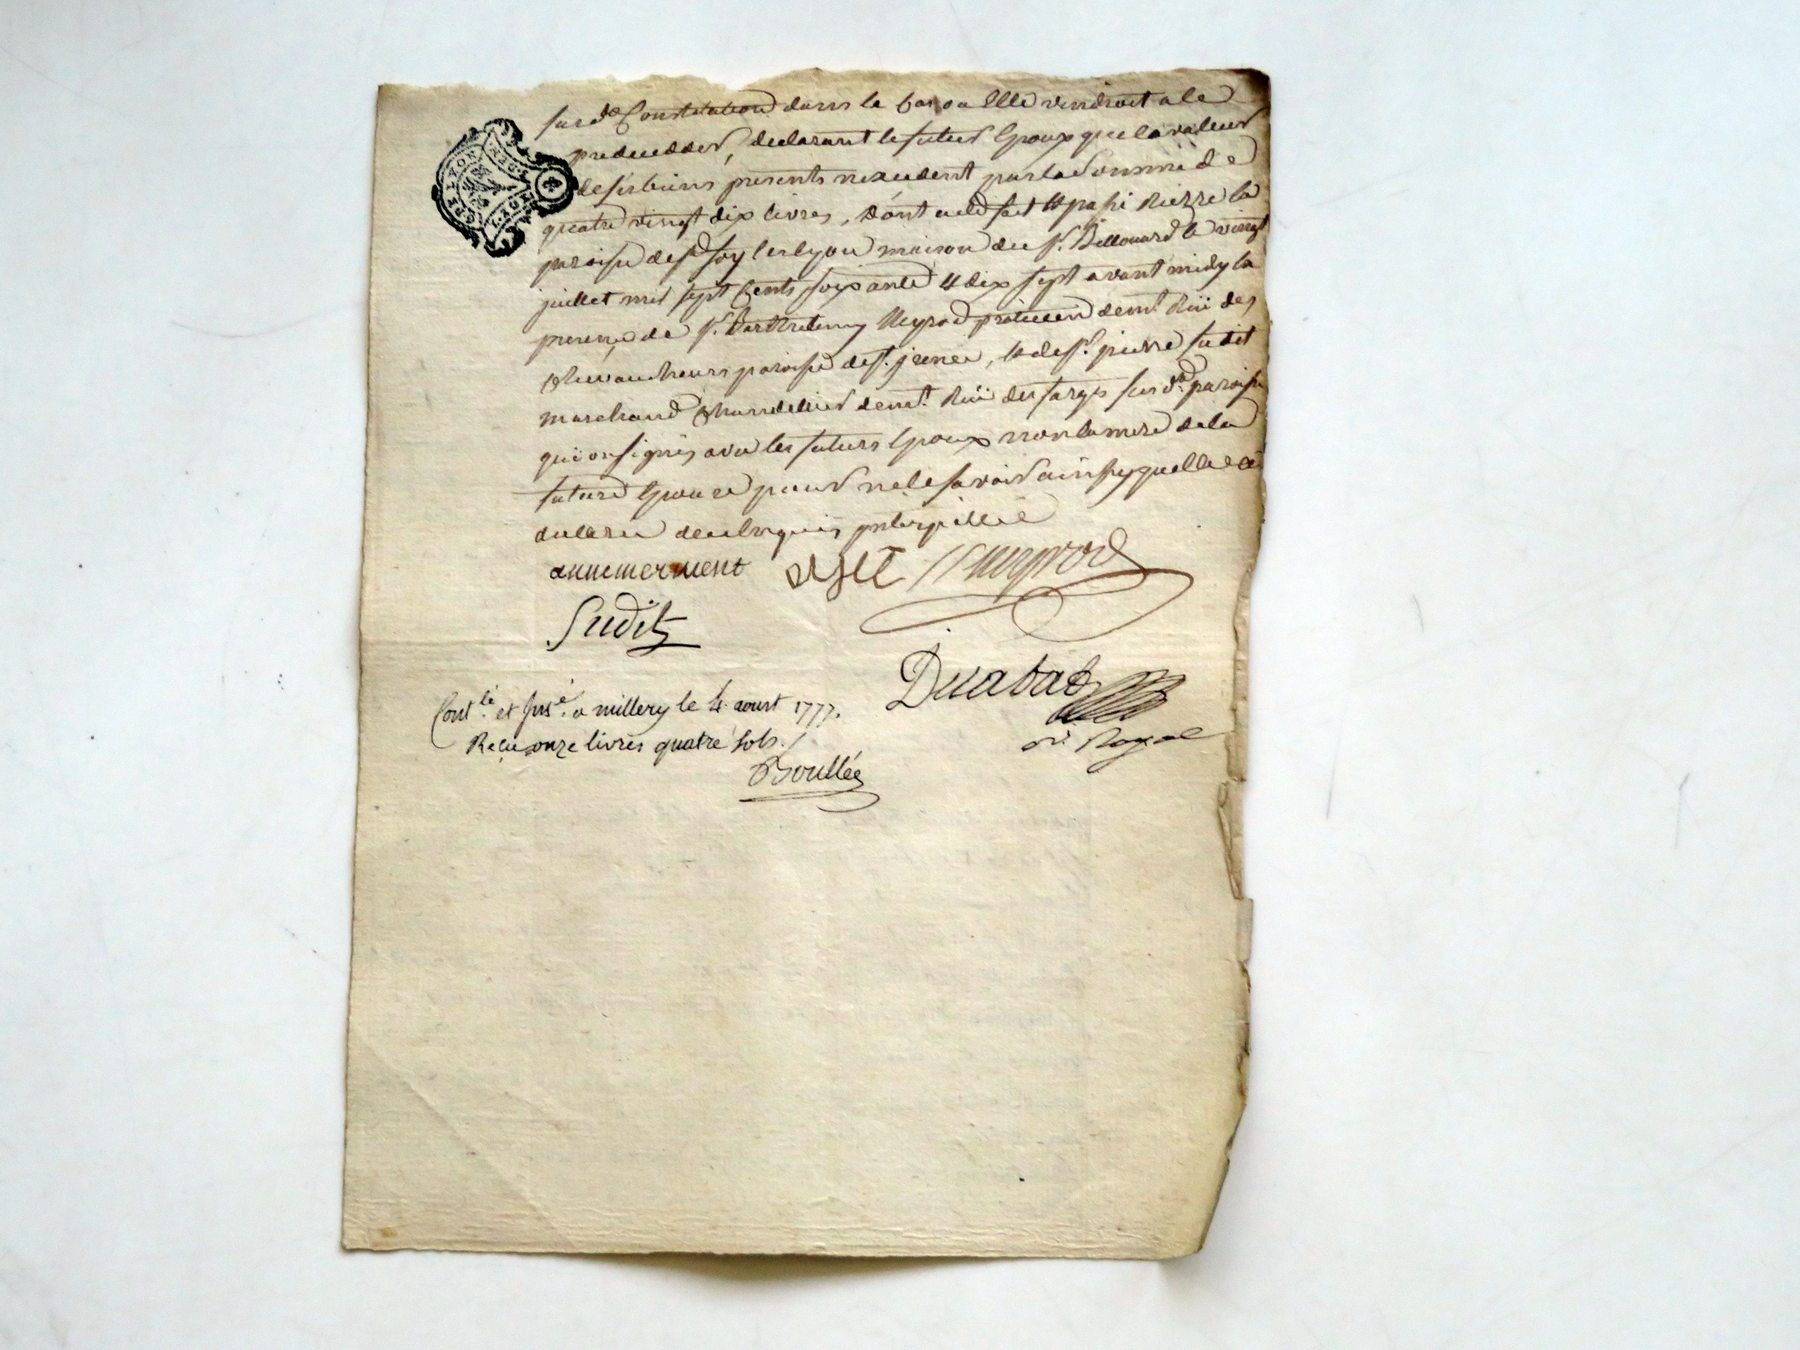 sus d.e Constitution dans le cas ou Elle viendroit a le
predeceder, declarant le futur Epoux que la valeur
de ses biens presents n'excedent pas la Somme de
quatre vingt dix livres, Dont acte fait et passé Riere la
paroisse de s.te foy les lyon maison du s.r Billouard le vingt
juillet mil sept Cents soixante et dix sept avant midy En
presence de s.r Barthelemy Neyrod praticien dem.t Rüe des
Chevaucheurs paroisse de s.t jrenee, et de s.r pierre sudit
marchand Chandelier dem.t Rüe des farges sus d.te paroisse
qui ont signés avec les futurs Epoux non la mere de la
future Epouse pour ne le savoir ainsy quelle a
declaré de ce Enquis
Neyrod
Sudit
Ducabat
n.re Royal
Cont.lé et Jns.é a millery le 4. aoust 1777.
Reçu onze livres quatre sols./
Boullée
GEN DE LYON